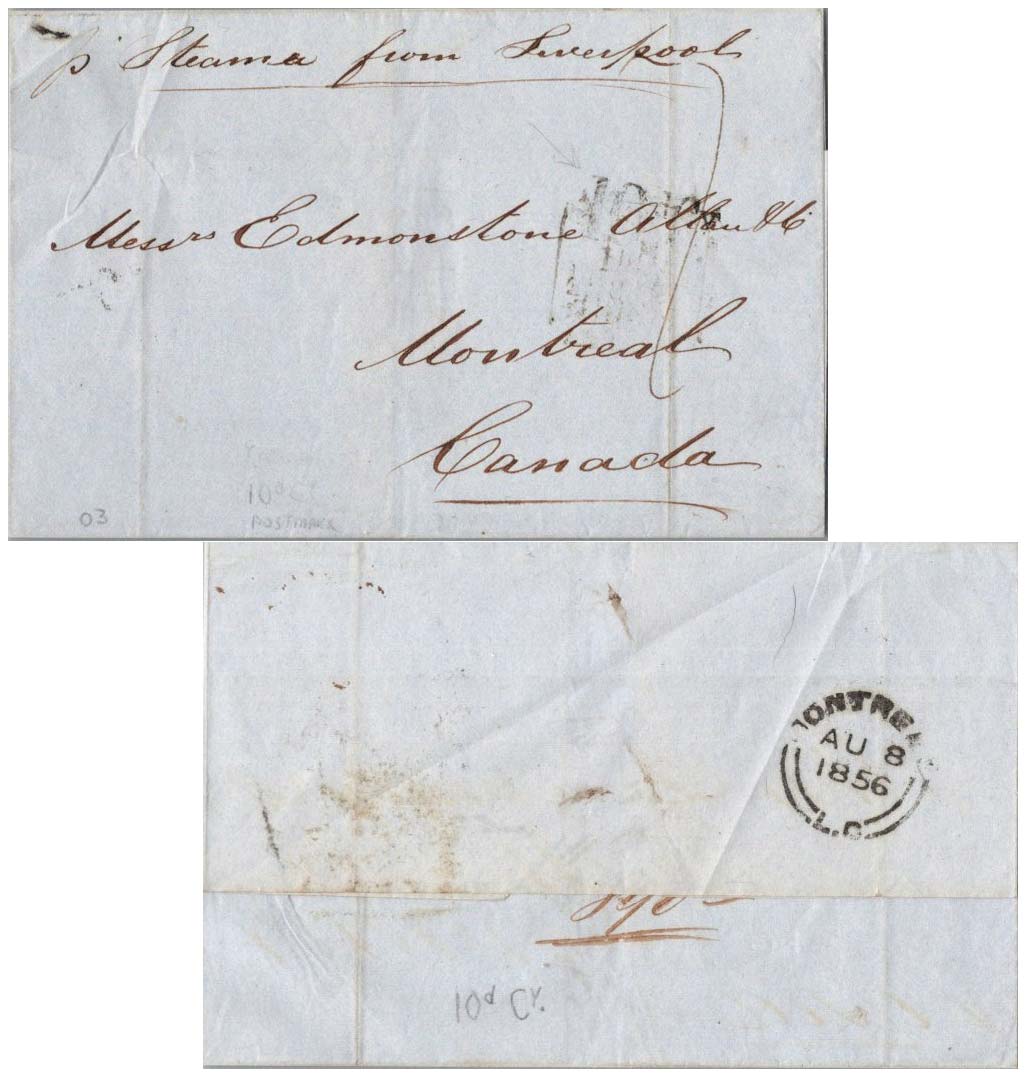 p Steamer from Liverpool
Messrs Edmonstone Allan & Co
Montreal
Canada
10d Cy
POSTMARK
03
MONTREAL
AU 8
1856
L.C.
10d Cy.